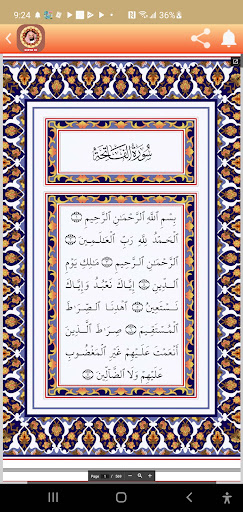 9:24
36%
سُورَةُ الفَاتِحَةِ
بِسْمِ ٱللَّهِ ٱلرَّحْمَٰنِ ٱلرَّحِيمِ ۝
ٱلْحَمْدُ لِلَّهِ رَبِّ ٱلْعَٰلَمِينَ ۝
ٱلرَّحْمَٰنِ ٱلرَّحِيمِ ۝ مَٰلِكِ يَوْمِ
ٱلدِّينِ ۝ إِيَّاكَ نَعْبُدُ وَإِيَّاكَ
نَسْتَعِينُ ۝ ٱهْدِنَا ٱلصِّرَٰطَ
ٱلْمُسْتَقِيمَ ۝ صِرَٰطَ ٱلَّذِينَ
أَنْعَمْتَ عَلَيْهِمْ غَيْرِ ٱلْمَغْضُوبِ
عَلَيْهِمْ وَلَا ٱلضَّآلِّينَ ۝
Page 1 / 569